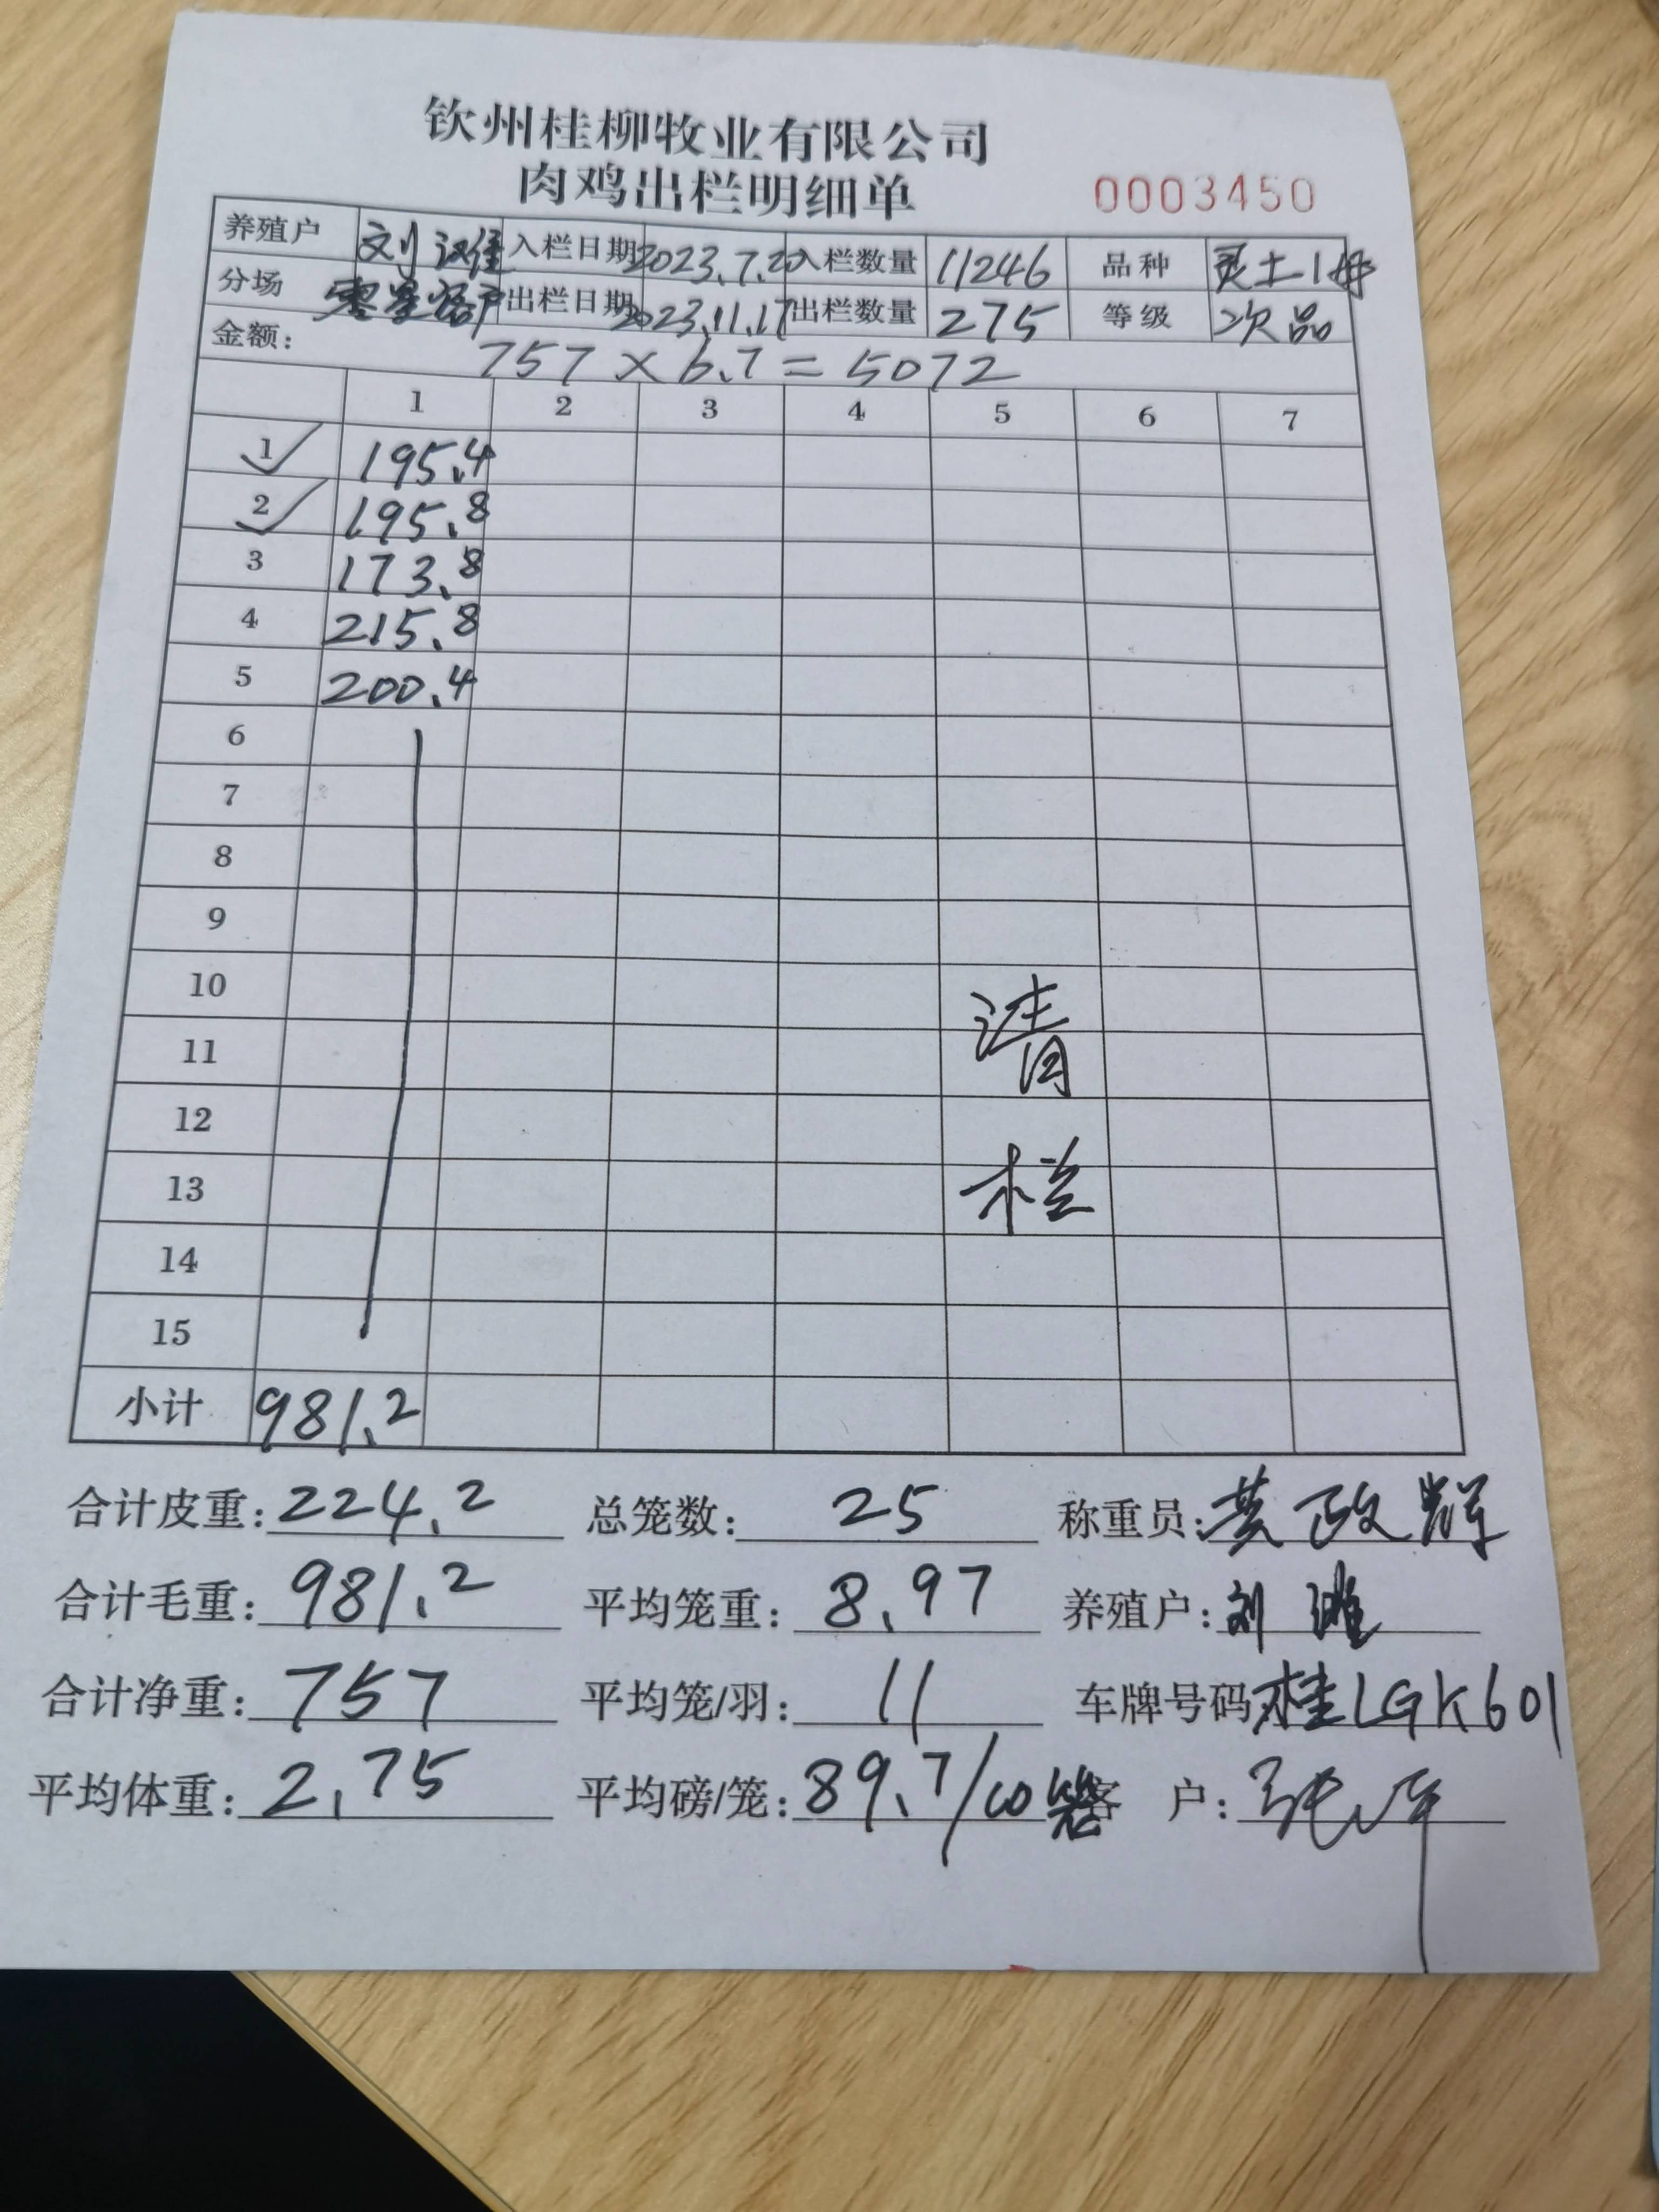 钦州桂柳牧业有限公司
肉鸡出栏明细单 0003450
养殖户 刘汉佳 入栏日期 2023.7.20 入栏数量 11246 品种 灵土1母
分场 零星客户 出栏日期 2023.11.17 出栏数量 275 等级 次品
金额: 757×6.7=5072
1 2 3 4 5 6 7
1 195.4
2 195.8
3 173.8
4 215.8
5 200.4
6
7
8
9
10
11 清
12
13 栏
14
15
小计 981.2
合计皮重: 224.2 总笼数: 25 称重员: 黄政辉
合计毛重: 981.2 平均笼重: 8.97 养殖户: 刘
合计净重: 757 平均笼/羽: 11 车牌号码 桂LGK601
平均体重: 2.75 平均磅/笼: 89.7/10 客 户: